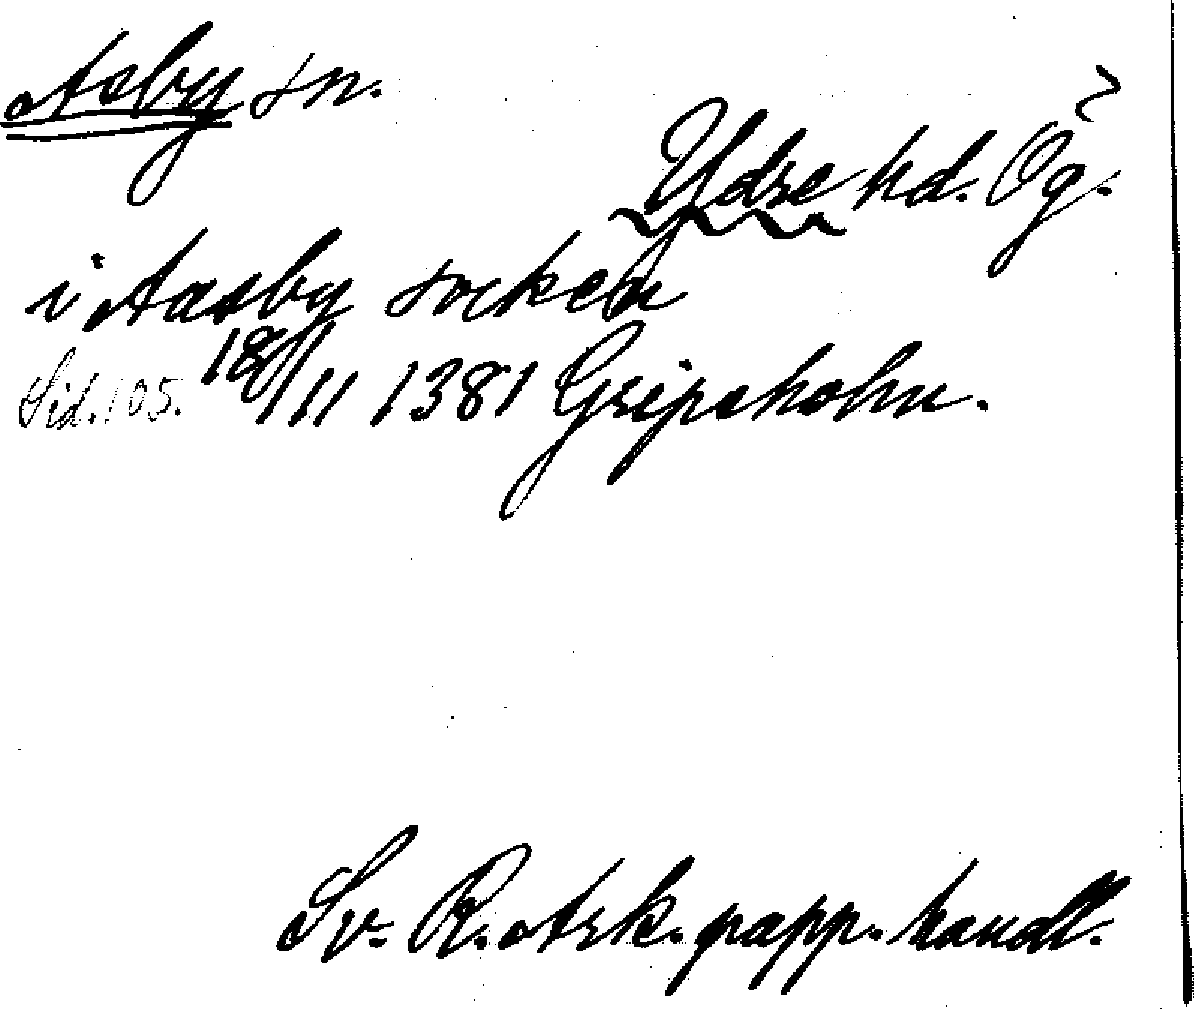 Asby sn.
Ydre hd. Ög.
i Aasby socken
Sid. 105. 18/11 1381 Gripsholm.
Sv. R. Ark. papp. handl.